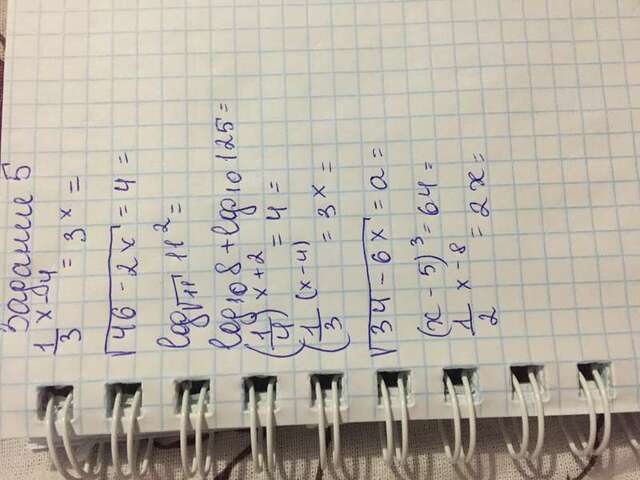 Задание 5
1/3 ^ x-4 = 3^x =
√46 - 2x = 4 =
log_√11 11^2 =
log_10 8 + log_10 125 =
(1/4)^x+2 = 4 =
(1/3 ^(x-4) = 3^x =
√34 - 6x = a =
(x - 5)^3 = 64 =
1/2 ^ x-8 = 2x =